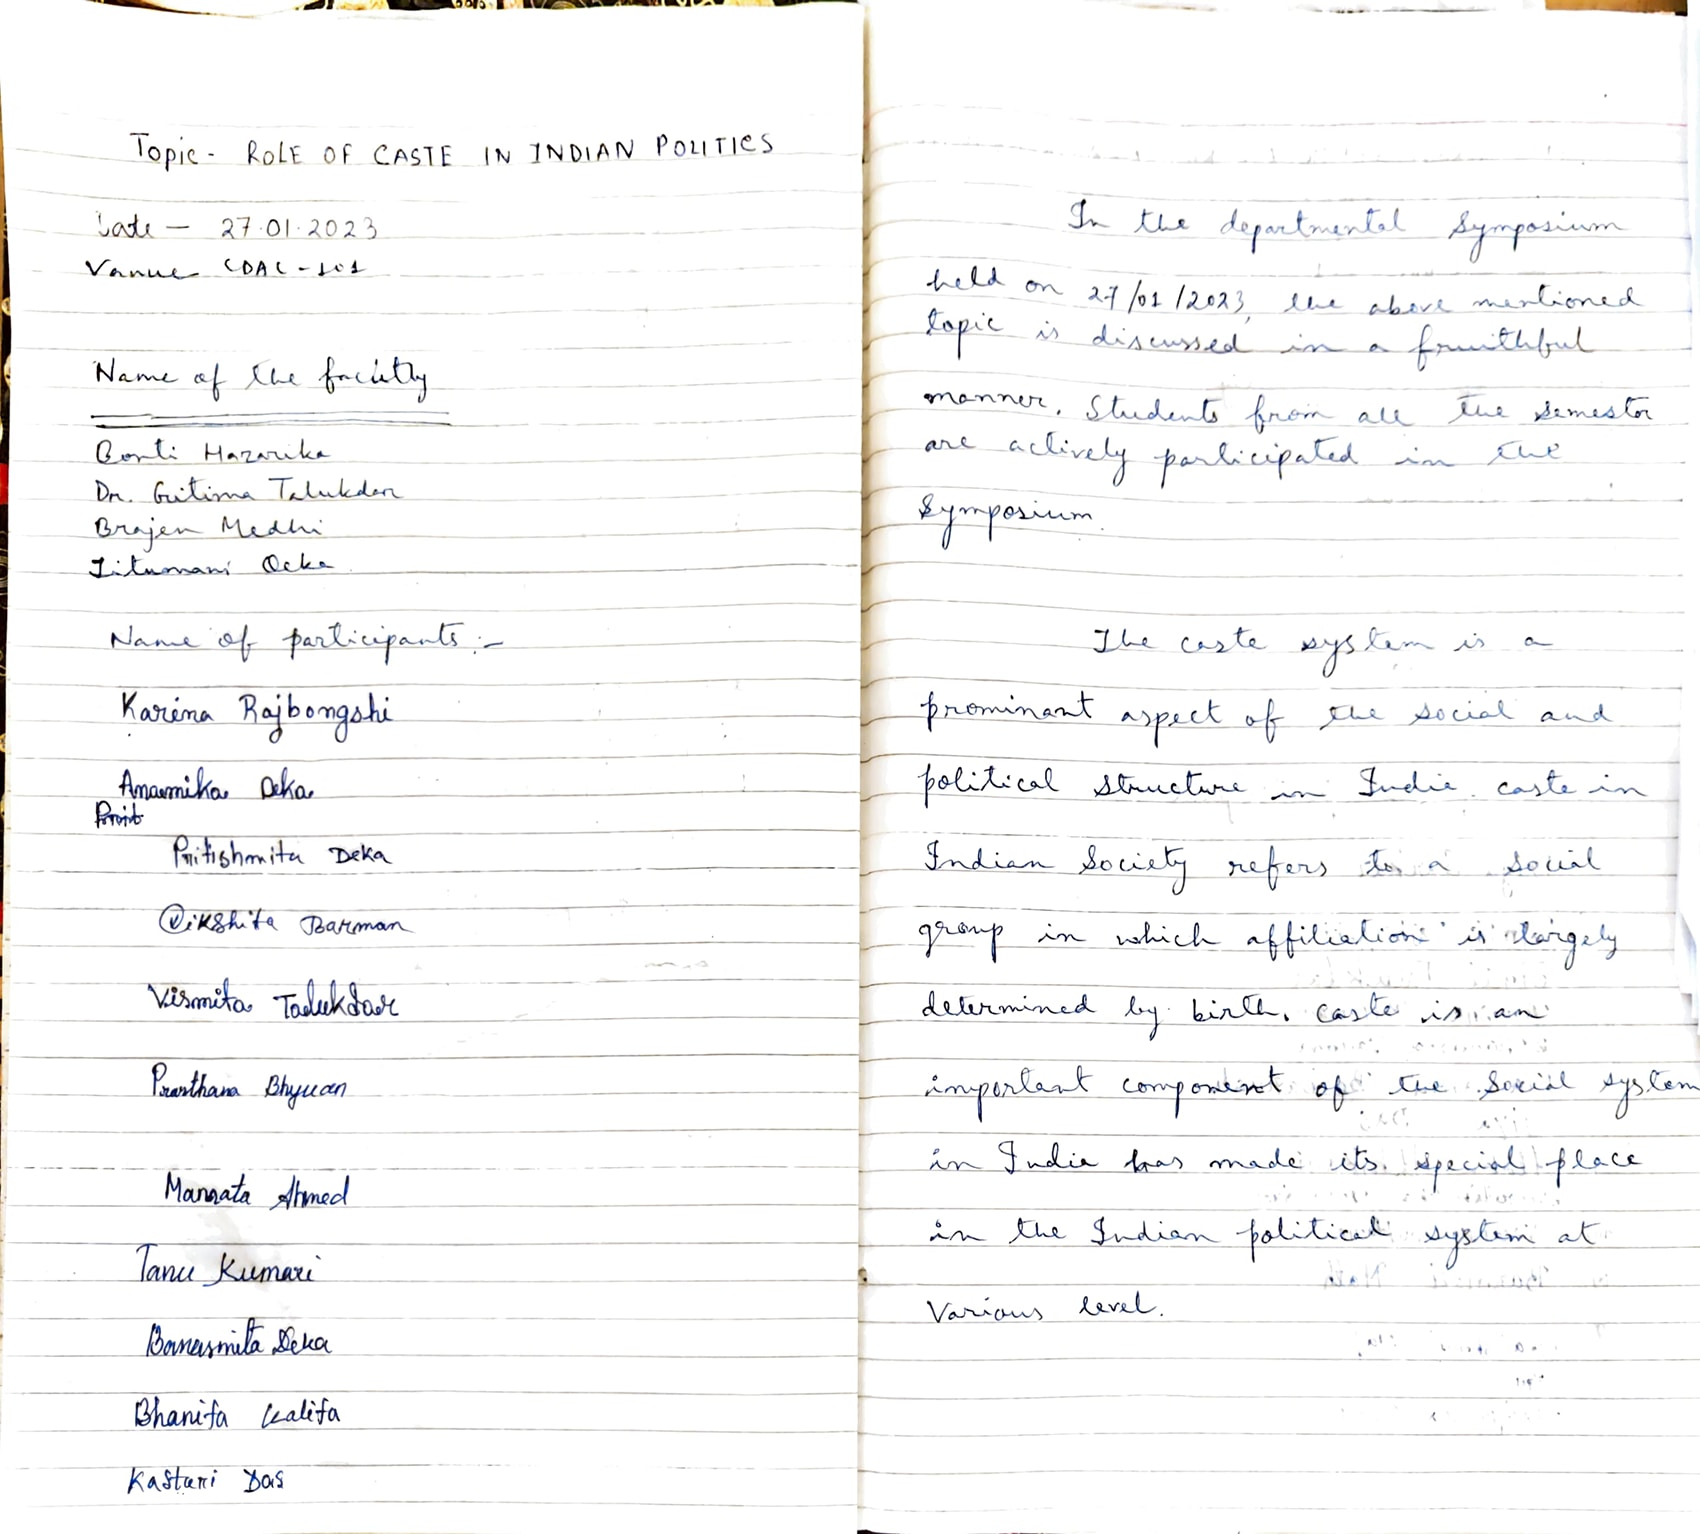 Topic - ROLE OF CASTE IN INDIAN POLITICS
Date - 27.01.2023
Vanue CDAC-101
Name of the facultly
Bonti Hazarika
Dr. Gritima Talukdar
Brajen Medhi
Jitumani Ocka
Name of participants :-
Karina Rajbongshi
Anamika Deka
Pritishmita Deka
Dikshita Barman
Vismita Talukdar
Prarthana Bhyuan
Mannata Ahmed
Tanu Kumari
Banasmita Deka
Bhanita Kalita
Kasturi Das
In the departmental Symposium
held on 27/01/2023, the above mentioned
topic is discussed in a fruithful
manner. Students from all the semestor
are actively participated in the
Symposium.
The caste system is a
prominant aspect of the social and
political structure in India. caste in
Indian Society refers to a social
group in which affiliation is largely
determined by birth. caste is an
important component of the Social system
in India has made its special place
in the Indian political system at
Various level.